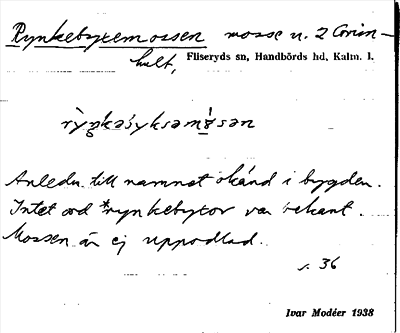 Rynkebyxemossen mosse u. 2 Corin-
hult, Fliseryds sn, Handbörds hd, Kalm. l.
Anledn. till namnet okänd i bygden.
Intet ord *rynkebyxor var bekant.
Mossen är ej uppodlad.
s. 36
Ivar Modéer 1938